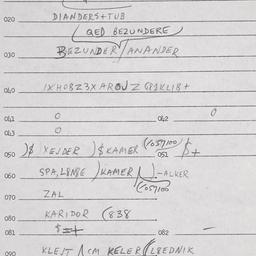 020 DIANDERS+TUB
(QED BEZUNDERE)
030 BEZUNDER/ANANDER
040
041 0 042 0
043 0
050 )$ XEJDER )$KAMER (/057100) 051 $+
060 SPA,L8N8E )KAMER )-ALKER
(/057100)
070 ZAL
080 KARIDOR (838
081 $=+ 082 —
090 KLEJT /CM KELER (L8EDNIK